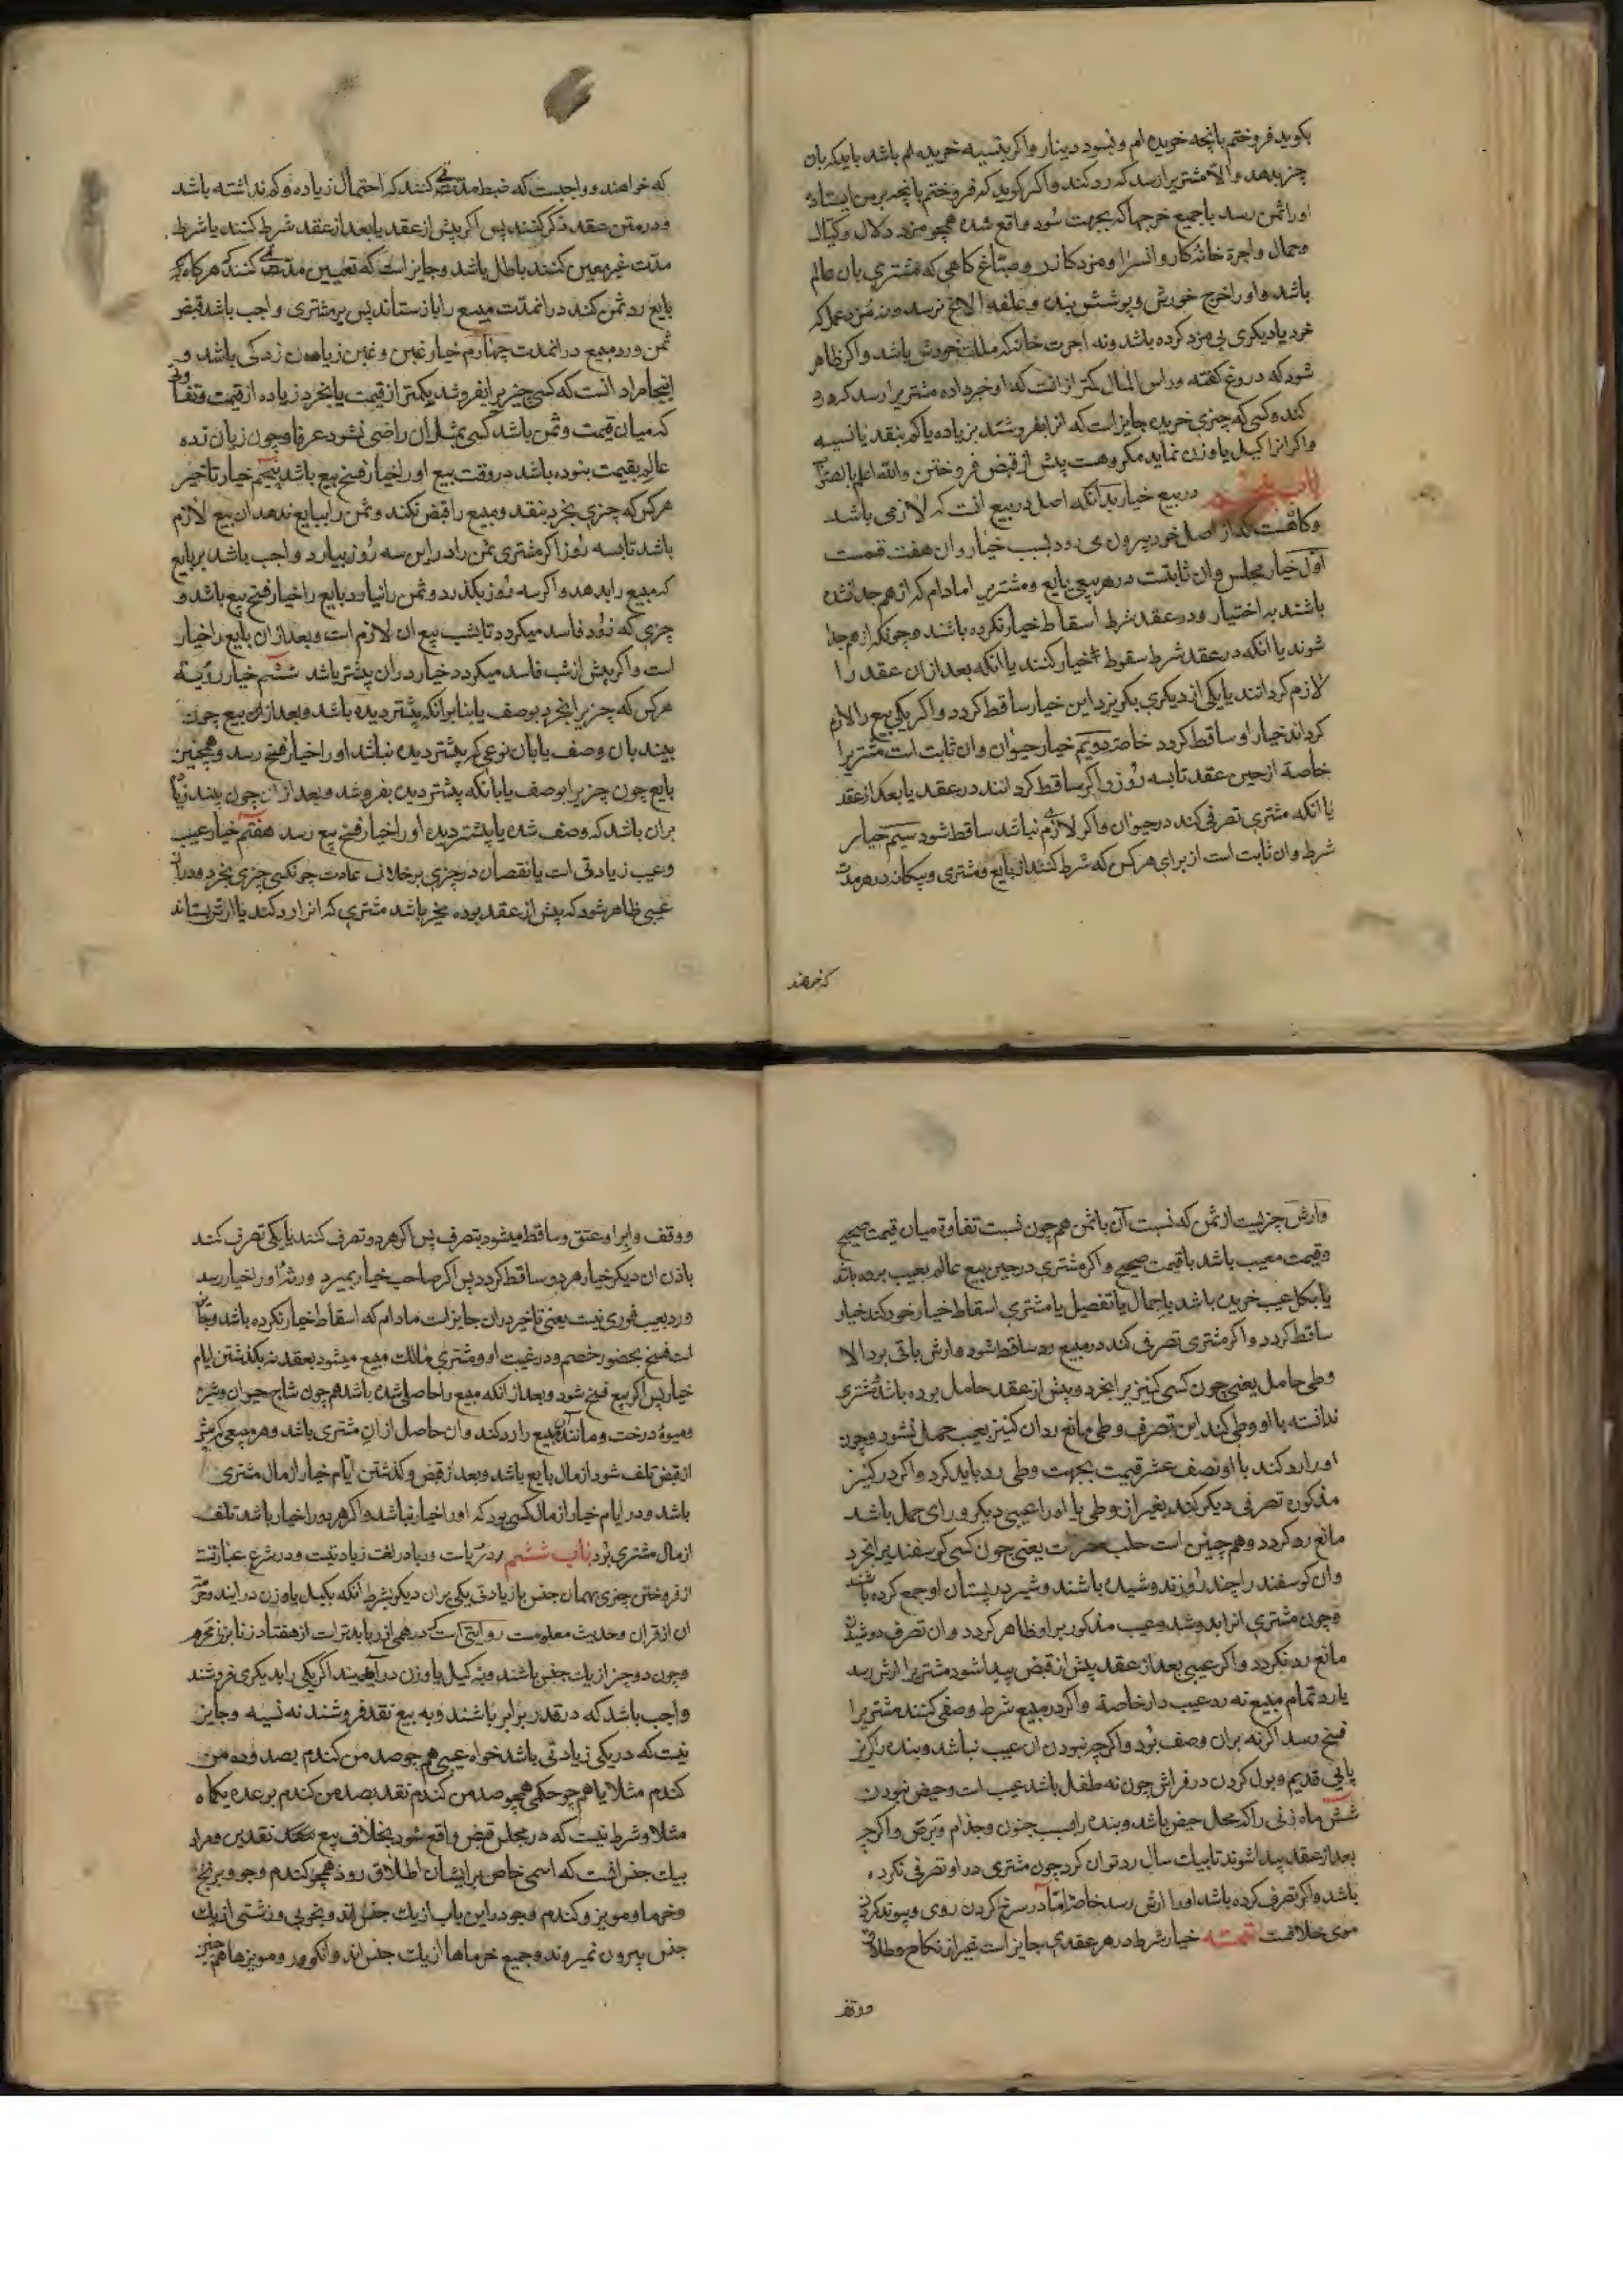 بکوید فروختم بانچه خریده ام و بسود دینار و اکر بنسیه خریده ام باشد باید که بان
چیز بدهد و الا مشتریرا رسد که رد کند و اکر کوید که فروختم بانچه بر من ایستاده
اورا ثمن رسد با جمیع خرجها که بجهت سود واقع شده همچو مزد دلال و کیال
و حمال و اجرة خانه کاروانسرا و مزد کازر و صباغ کاهی که مشتری بان عالم
باشد و اورا خرج خورش و پوشش بنده و علفه الاغ نرسد و نه مزد عمل که
خرد یا دیکری بی مزد کرده باشد و نه اجرت خانه که ملک خودش باشد و اکر ظاهر
شود که دروغ کفته و راس المال کمتر از انست که او خبر داده مشتریرا رسد که رد
کند و کسی که چیزی خریده جایز است که انرا بفروشد بزیاده یا کم بنقد یا نسیه
و اکر انرا کیل یا وزن نماید مکروهست پیش از قبض فروختن والله اعلم بالصواب
باب پنجم در بیع خیار بدانکه اصل در بیع انست که لازمی باشد
و کاهست که از اصل خود بیرون می رود بسبب خیار و ان هفت قسمت
اول خیار مجلس و ان ثابتست در هر بیع بایع و مشتریرا مادام که از هم جدا نشده
باشند به اختیار و در عقد شرط اسقاط خیار نکرده باشند و چونکه از هم جدا
شوند یا انکه در عقد شرط سقوط خیار کنند یا انکه بعد از ان عقد را
لازم کردانند یا یکی از دیکری بکریزد این خیار ساقط کردد و اکر یکی بیع را لازم
کرداند خیار او ساقط کردد خاصة دویم خیار حیوان و ان ثابت است مشتریرا
خاصة از حین عقد تا بسه روز و اکر ساقط کردانند در عقد یا بعد از عقد
یا انکه مشتری تصرفی کند در حیوان و اکر لازم نباشد ساقط شود سیم خیار
شرط و ان ثابت است از برای هر کس که شرط کنند از بایع و مشتری و بیکانه در هر مدت
که خراهند
که خراهند و واجبست که ضبط مدتی کنند که احتمال زیاده و کم نداشته باشد
و در متن عقد ذکر کنند پس اکر پیش از عقد یا بعد از عقد شرط کنند یا شرط
مدت غیر معین کنند باطل باشد و جایز است که تعیین مدتی کنند که هرکاه که
بایع رد ثمن کند در انمدت مبیع را باز ستاند پس بر مشتری واجب باشد قبض
ثمن و رد مبیع در انمدت چهارم خیار غبن و غبن زیاده زدکی باشد و
اینجا مراد انست که کسی چیزیرا بفروشد بکمتر از قیمت یا بخرد زیاده از قیمت و تفاوتی
که میان قیمت و ثمن باشد کسی بمثل ان راضی نشود عرفا و چون زیان زده
عالم بقیمت نبوده باشد در وقت بیع اورا خیار فسخ بیع باشد پنجم خیار تاخیر
هرکس که چیزی بخرد بنقد و مبیع را قبض نکند و ثمن را ببایع ندهد ان بیع لازم
باشد تا بسه روز اکر مشتری ثمن را در این سه روز بیارد واجب باشد بر بایع
که مبیع را بدهد و اکر سه روز بکذرد و ثمن را نیاورد بایع را خیار فسخ بیع باشد و
چیزی که زود فاسد میکردد تا بشب بیع ان لازم است و بعد از ان بایع را خیار
است و اکر پیش از شب فاسد میکردد خیار در ان پیشتر باشد ششم خیار رؤیة
هرکس که چیزیرا بخرد بوصف یا بنابرانکه پیشتر دیده باشد و بعد از ان بیع چون
بیند بان وصف یا بان نوعی که پیشتر دیده نباشد اورا خیار فسخ رسد و همچنین
بایع چون چیزیرا بوصف یا بانکه پیشتر دیده بفروشد و بعد از ان چون بیند زیاده
بران باشد که وصف شده یا پیشتر دیده اورا خیار فسخ بیع رسد هفتم خیار عیب
و عیب زیادتی است یا نقصان در چیزی بر خلاف عادت چونکه کسی چیزی بخرد و در ان
عیبی ظاهر شود که پیش از عقد بوده مخیر باشد مشتری که انرا رد کند یا ارش بستاند
و ارش جزئیست از ثمن که نسبت آن با ثمن همچون نسبت تفاوة میان قیمت صحیح
و قیمت معیب باشد با قیمت صحیح و اکر مشتری در حین بیع عالم بعیب بوده باشد
یا بکل عیب خریده باشد باجمال یا تفصیل یا مشتری اسقاط خیار خود کند خیار
ساقط کردد و اکر مشتری تصرفی کند در مبیع رد ساقط شود و ارش باقی بود الا
وطی حامل یعنی چون کسی کنیزیرا بخرد و پیش از عقد حامل بوده باشد و مشتری
ندانسته با او وطی کند این تصرف وطی مانع رد ان کنیز بعیب حمل نشود و چون
اورا رد کند با او نصف عشر قیمت بجهت وطی رد باید کرد و اکر در کنیز
مذکوره تصرفی دیکر کند بغیر از وطی یا اورا عیبی دیکر ورای حمل باشد
مانع رد کردد و همچنین است حلب مصراة یعنی چون کسی کوسفندیرا بخرد
و ان کوسفند را چند روز ندوشیده باشند و شیر در پستان او جمع کرده باشند
و چون مشتری انرا بدوشد و عیب مذکور بر او ظاهر کردد و ان تصرف دوشیدن
مانع رد نکردد و اکر عیبی بعد از عقد پیش از قبض پیدا شود مشتریرا ارش رسد
یا رد تمام مبیع نه رد عیب دار خاصة و اکر در مبیع شرط وصفی کنند مشتریرا
فسخ رسد اکر نه بران وصف بود و اکرچه نبودن ان عیب نباشد و بنده را کریز
پائی قدیم و بول کردن در فراش چون نه طفل باشد عیب است و حیض نبودن
شش ماه زنی را که محال حیض باشد و بنده را بسبب جنون و جذام و برص و اکرچه
بعد از عقد پیدا شوند تا بیک سال رد توان کرد چون مشتری در او تصرفی نکرده
باشد و اکر تصرف کرده باشد اورا ارش رسد خاصة اما در سرخ کردن روی و پیوند کردن
موی خلافست تتمه خیار شرط در هر عقدی جایز است غیر از نکاح و طلاق
و وقف
و وقف و ابرا و عتق و ساقط میشود بتصرف پس اکر هر دو تصرف کنند یا یکی تصرف کند
باذن ان دیکر خیار هر دو ساقط کردد پس اکر صاحب خیار بمیرد ورثه اورا خیار رسد
و رد بعیب فوری نیست یعنی تاخیر در ان جایز است مادام که اسقاط خیار نکرده باشد و جایز
است فسخ بحضور خصم و در غیبت او و مشتری مالک مبیع میشود بعقد نه بکذشتن ایام
خیار پس اکر بیع فسخ شود و بعد از انکه مبیع را حاصلی شده باشد همچون نتاج حیوان و شیر
و میوهٔ درخت و مانند آن مبیع را رد کند و ان حاصل از ان مشتری باشد و هر مبیعی که پیش
از قبض تلف شود از مال بایع باشد و بعد از قبض و کذشتن ایام خیار از مال مشتری
باشد و در ایام خیار از مال کسی بود که اورا خیار نباشد و اکر هر دو را خیار باشد تلف
از مال مشتری بود باب ششم در ربایات و ربا در لغت زیادتیست و در شرع عبارتست
از فروختن چیزی بهمان جنس با زیادتی یکی بران دیکر بشرط انکه بکیل یا وزن در ایند و حرمت
ان از قران و حدیث معلومست روایتی است که درهمی از ربا بدتر است از هفتاد زنا بزنی محرم
و چون دو چیز از یک جنس باشند و به کیل یا وزن درآیند اکر یکی را بدیکری فروشند
واجب باشد که در قدر برابر باشند و به بیع نقد فروشند نه نسیه و جایز
نیست که در یکی زیادتی باشد خواه عینی همچو صد من کندم بصد و ده من
کندم مثلا یا همچو حکمی همچو صد من کندم نقد بصد من کندم بوعده یکماه
مثلا و شرط نیست که در مجلس قبض واقع شود بخلاف بیع نقدین و مراد
بیک جنس انست که اسمی خاص بر ایشان اطلاق رود همچو کندم و جو و برنج
و خرما و مویز و کندم و جو در این باب از یک جنس اند و بخوبی و زشتی از یک
جنس بیرون نمیروند و جمیع خرماها از یک جنس اند و انکور و مویزها هم چنین